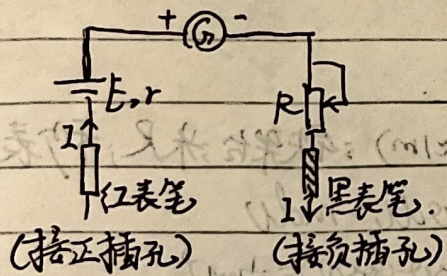 + G -
E,r
R
I
红表笔
I 黑表笔.
(接正插孔) (接负插孔)